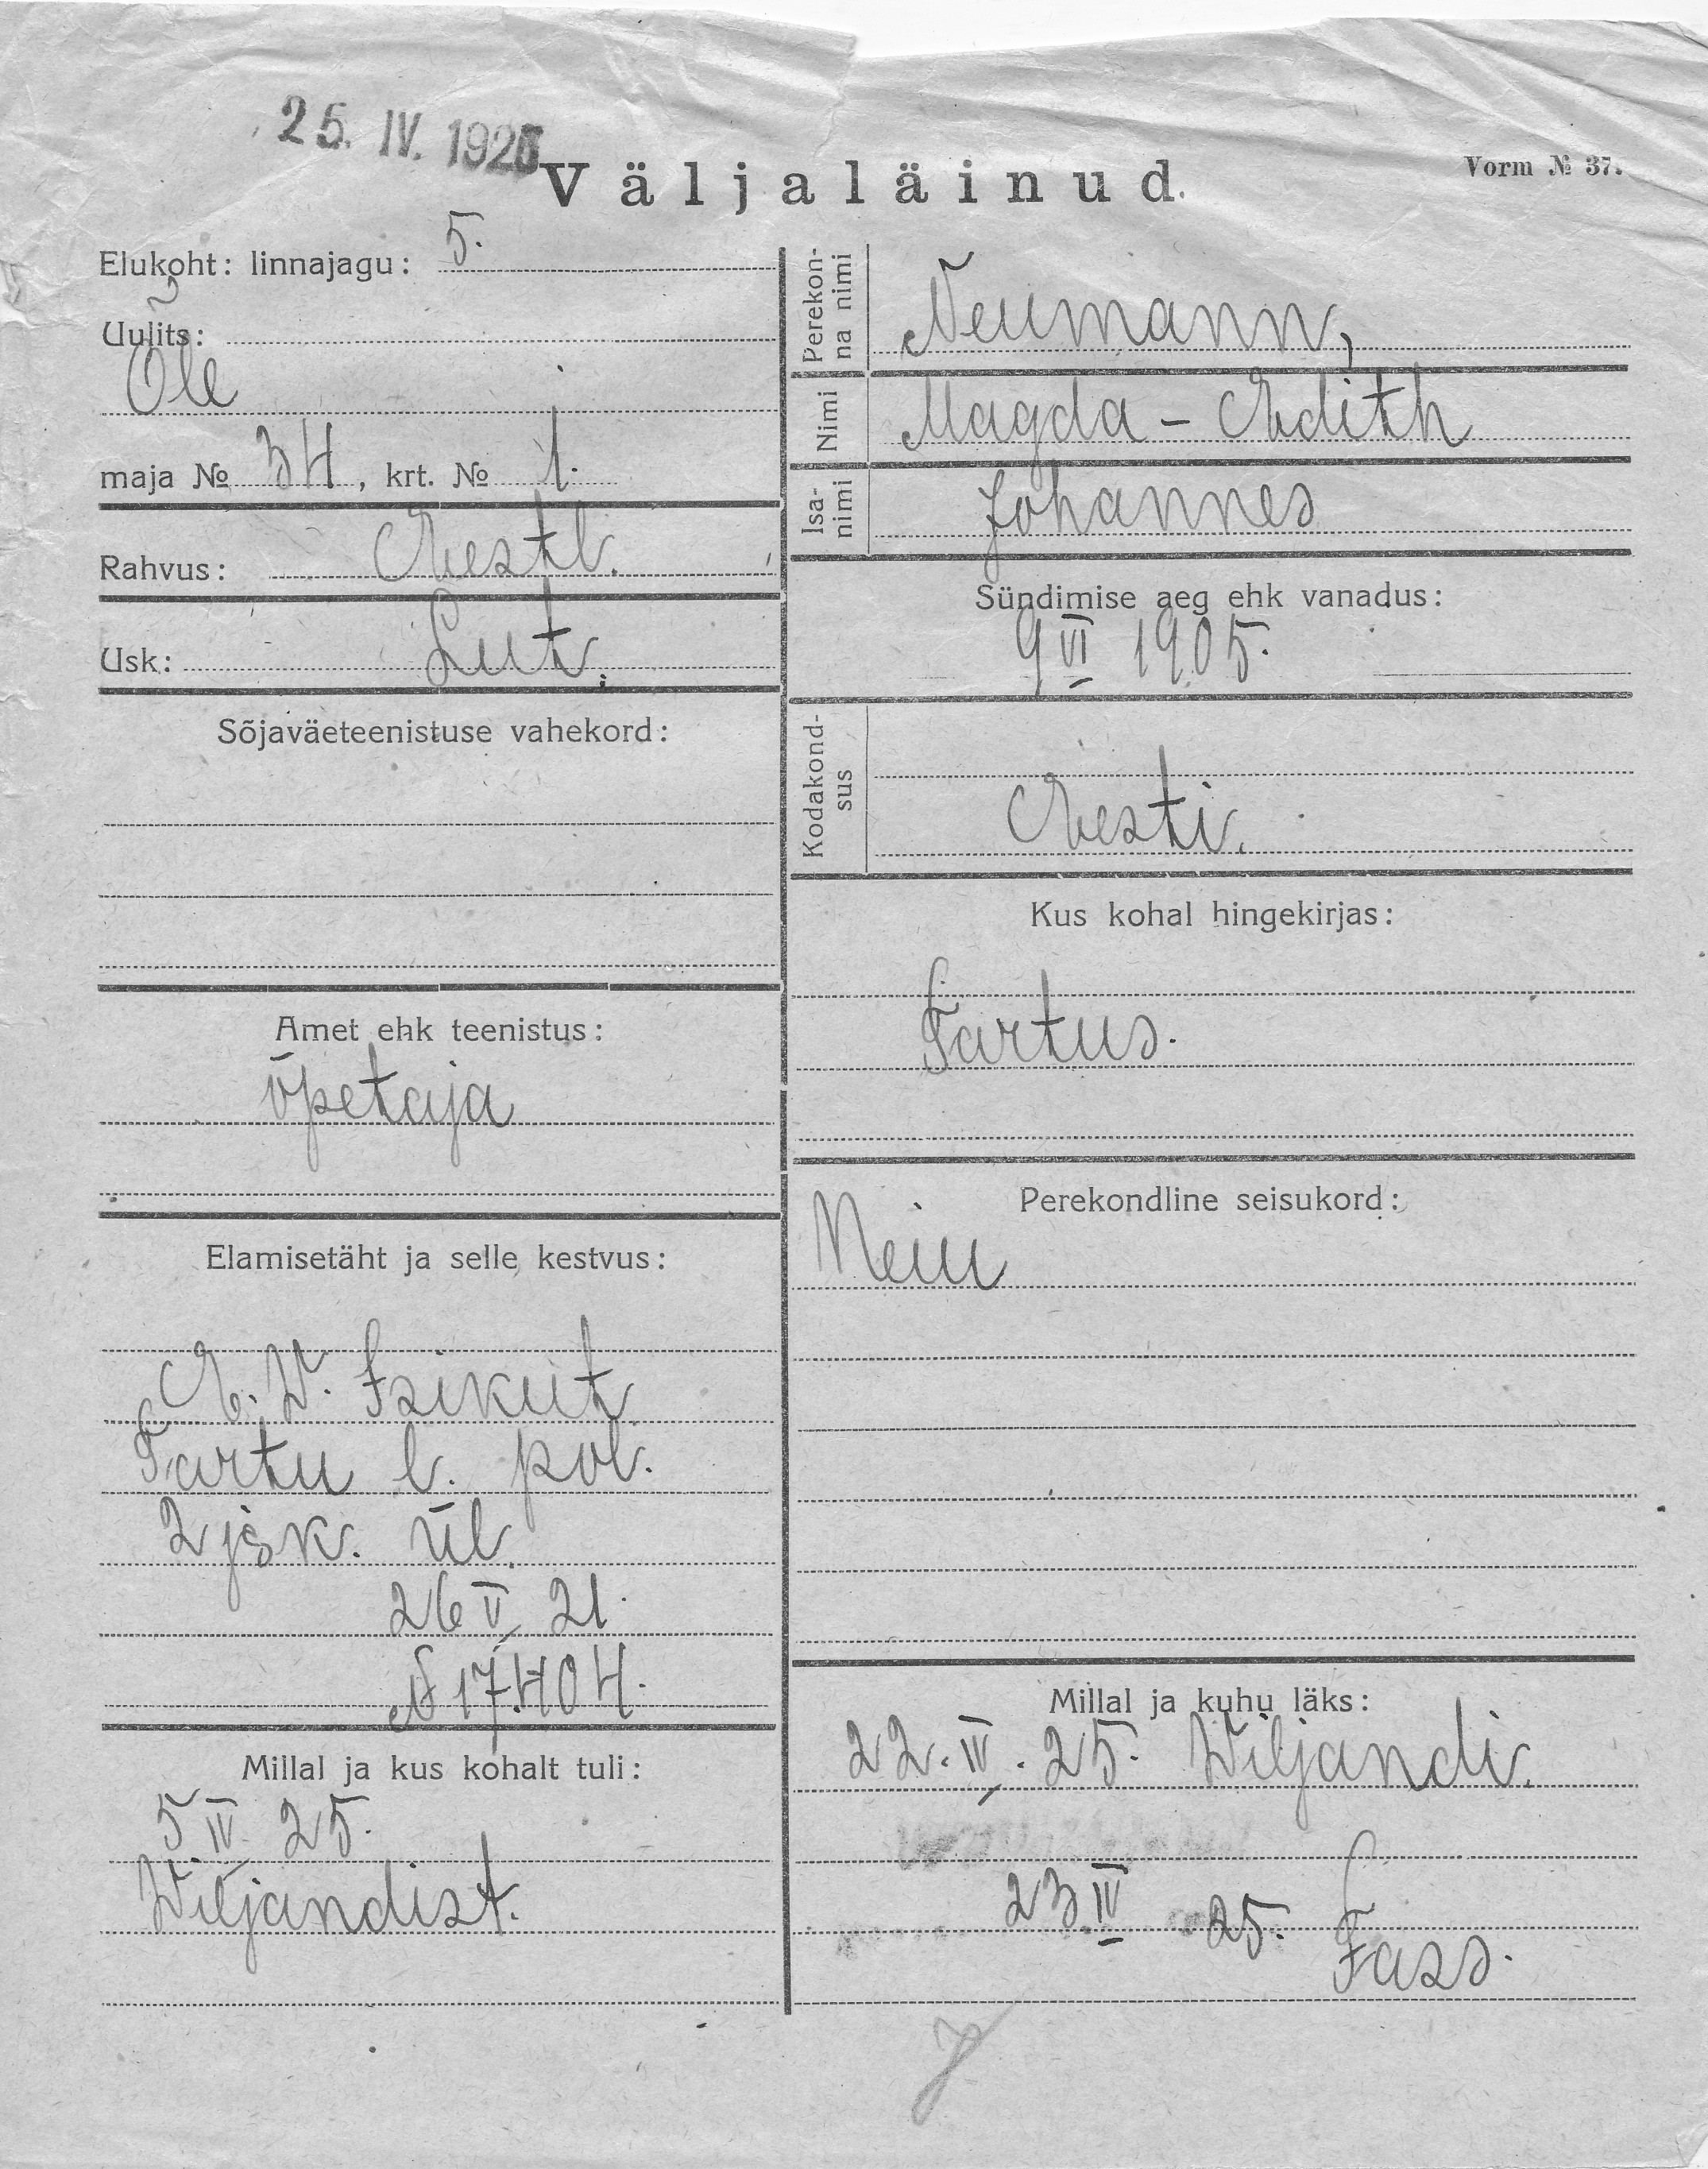 25. IV. 1925
Väljaläinud.
Vorm № 37.
Elukoht: linnajagu: 5.
Uulits:
Õle
maja № 34, krt. № 1.
Rahvus: Eestl.
Usk: Lut.
Sõjaväeteenistuse vahekord:
Amet ehk teenistus:
õpetaja
Elamisetäht ja selle kestvus:
E. W. Isikut.
Tartu l. pol.
2 jsk. ül.
26 V 21.
№ 17404.
Millal ja kus kohalt tuli:
5 IV 25.
Wiljandist.
Perekonna nimi
Neumann,
Nimi
Magda - Edith
Isanimi
Johannes
Sündimise aeg ehk vanadus:
9 VI 1905.
Kodakondsus
Eesti.
Kus kohal hingekirjas:
Tartus.
Perekondline seisukord:
Neiu
Millal ja kuhu läks:
22. IV. 25. Wiljandi.
23 IV 25.